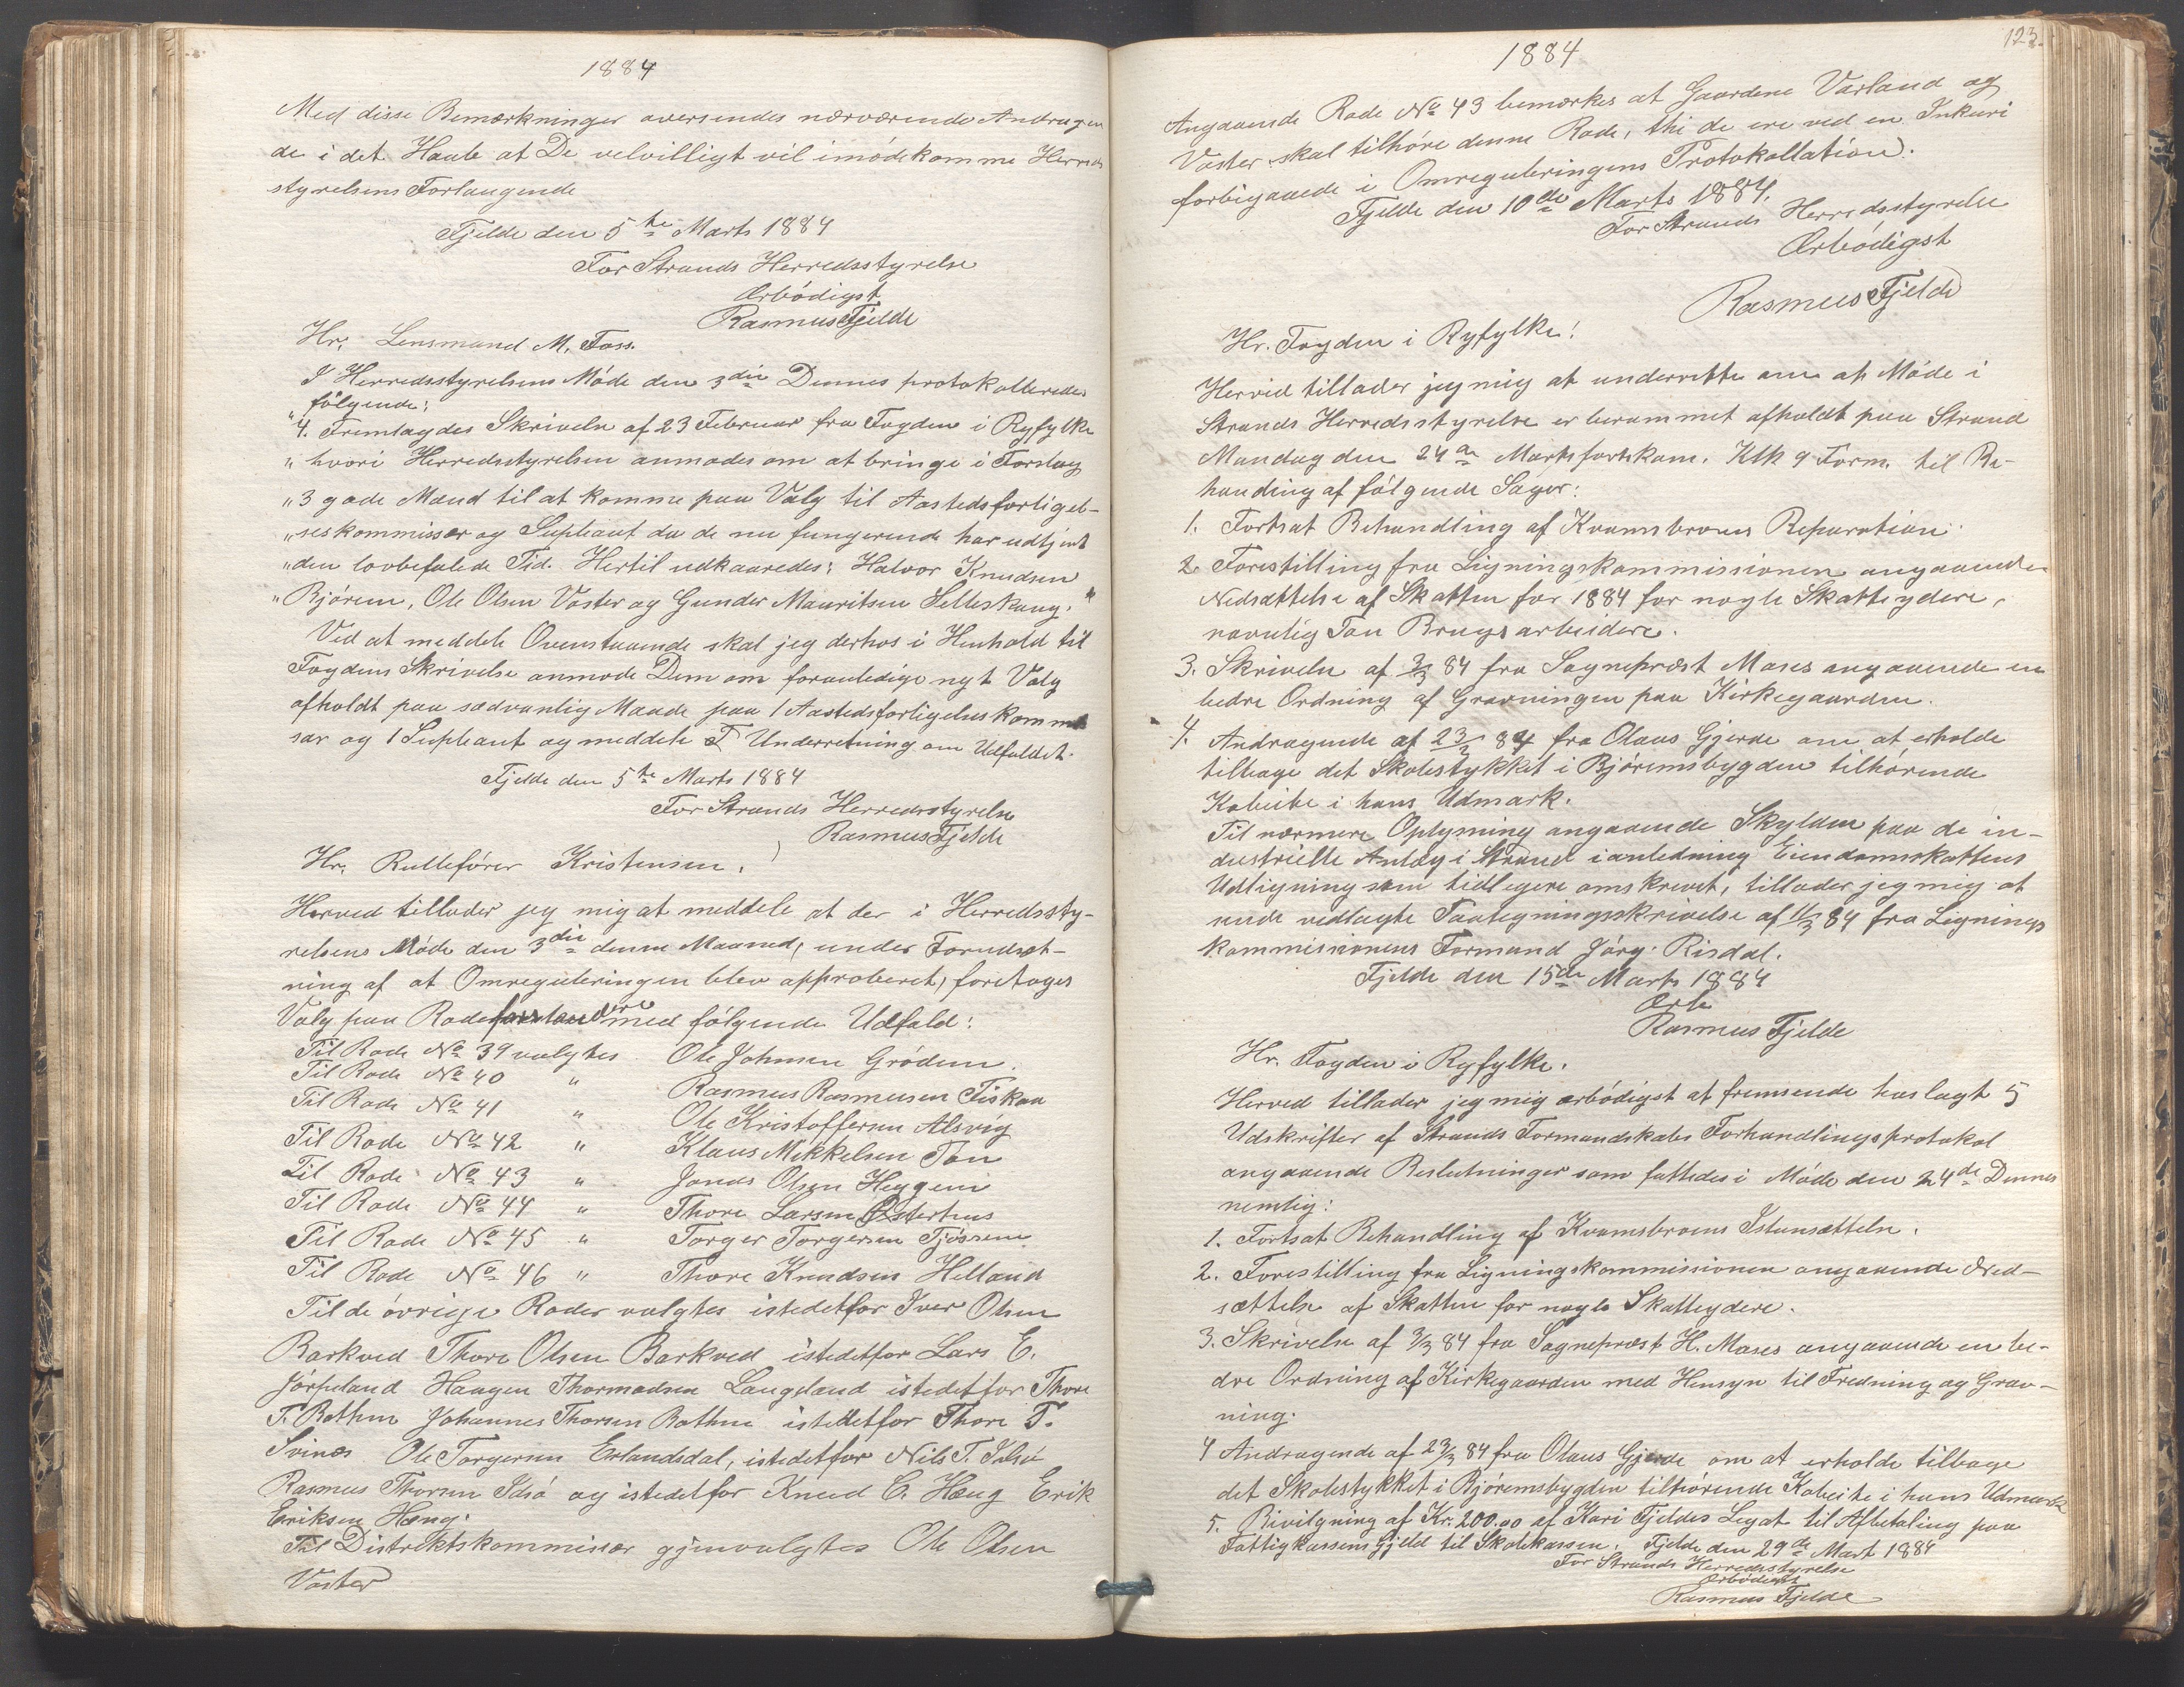 1884
Med disse Bemærkninger oversendes nærværende Andragen
de i det Haab at De velvilligt vil imødekomme Herreds
styrelsens Forlangende
Fjelde den 5te Marts 1884
For Strands Herredsstyrelse
Ærbödigst
Rasmus Fjelde
Hr. Lensmand M. Foss.
I Herredsstyrelsens Möde den 3die Dennes protokolleredes
fölgende:
"4. Fremlagdes Skrivelse af 23 Februar fra Fogden i Ryfylke
" hvori Herredsstyrelsen anmodes om at bringe i Forslag
"3 gode Mænd til at komme paa Valg til Aastedsforligel-
"seskommissær og Supleant da de nu fungerende har udtjent
"den lovbefalede Tid. Hertil udkaaredes: Halvor Knudsen
"Björeim, Ole Olsen Voster og Gunder Mauritsen Selleskoug."
Ved at meddele Ovenstaaende skal jeg derhos i Henhold til
Fogdens Skrivelse anmode Dem om foranledige nyt Valg
afholdt paa sædvanlig Maade paa 1 Aastedsforligelseskommis
sær og 1 Supleant og meddele Underretning om Udfaldet.
Fjelde den 5te Marts 1884
For Strands Herredsstyrelse
Rasmus Fjelde
Hr. Rulleförer Kristensen.
Herved tillader jeg mig at meddele at der i Herredssty-
relsens Möde den 3die denne Maaned, under Forudsæt-
ning af at Omreguleringen blev approberet, foretoges
Valg paa Rodeforstandere med fölgende Udfald:
Til Rode No 39 valgtes Ole Johnsen Grödem.
Til Rode No 40 " Rasmus Rasmusen Fiskaa
Til Rode No 41 " Ole Kristoffersen Alsvig
Til Rode No 42 " Klaus Mikkelsen Tou
Til Rode No 43 " Jonas Olsen Heggem
Til Rode No 44 " Thore Larsen Østerhus
Til Rode No 45 " Torger Torgersen Tjössem
Til Rode No 46 " Thore Knudsen Helland
Til de övrige Roder valgtes istedetfor Iver Olsen
Barkved Thore Olsen Barkved istedetfor Lars E.
Jörpeland Haagen Thormodsen Langeland istedetfor Thore
T. Bothne Johannes Thorsen Bothne istedetfor Thore T.
Svines Ole Torgersen Erlandsdal, istedetfor Nils T. Idsö
Rasmus Thorsen Idsö og istedetfor Knud C. Hæng Erik
Eriksen Hæng.
Til Distriktskommissær gjenvalgtes Ole Olsen
Voster
123.
1884
Angaaende Rode No 43 bemærkes at Gaardene Varland og
Voster skal tilhöre denne Rode, thi de ere ved en Inkuri
forbigaaede i Omreguleringens Protokollation.
Fjelde den 10de Marts 1884.
For Strands Herredsstyrelse
Ærbödigst
Rasmus Fjelde
Hr. Fogden i Ryfylke!
Herved tillader jeg mig at underrette om at Möde i
Strands Herredsstyrelse er berammet afholdt paa Strand
Mandag den 24de Marts førstkom. Klk 9 Form. til Be-
handling af fölgende Sager:
1. Fortsat Behandling af Kvamsbroens Reparation
2. Forestilling fra Ligningskommissionen angaaende
Nedsættelse af Skatten for 1884 for nogle Skatteydere,
navnlig Tou Brugs arbeidere.
3. Skrivelse af 3/3 84 fra Sogneprest Moses angaaende en
bedre Ordning af Gravningen paa Kirkegaarden.
4. Andragende af 23/2 84 fra Olaus Gjerde om at erholde
tilbage det Skolestykket i Björeimsbygden tilhörende
Kobeite i hans Udmark.
Til nærmere Oplysning angaaende Skylden paa de in-
dustrielle Anlæg i Strand i anledning Eiendomsskattens
Udligning som tidligere omskrevet, tillader jeg mig at
sende vedlagte Paategningsskrivelse af 11/3 84 fra Lignings
kommissionens Formand Jörg. Risdal.
Fjelde den 15de Marts 1884
Ærb
Rasmus Fjelde
Hr. Fogden i Ryfylke.
Herved tillader jeg mig ærbödigst at fremsende hoslagt 5
Udskrifter af Strands Formandskabs Forhandlingsprotokol
angaaende Beslutninger som fattedes i Möde den 24de Dennes
nemlig:
1. Fortsat Behandling af Kvamsbroens Istandsættelse.
2. Forestilling fra Ligningskommissionen angaaende Ned-
sættelse af Skatten for nogle Skatteydere.
3. Skrivelse af 3/3 84 fra Sogneprest H. Moses angaaende en be-
dre Ordning af Kirkegaarden med Hensyn til Fredning og Grav-
ning.
4 Andragende af 23/2 84 fra Olaus Gjerde om at erholde tilbage
det Skolestykket i Björeimsbygden tilhörende Kobeite i hans Udmark
5. Bivilgning af Kr. 200.00 af Kari Fjeldes Legat til Afbetaling paa
Fattigkassens Gjeld til Skolekassen. Fjelde den 29de Mart 1884
For Strands Herredsstyrelse
Ærbödigst
Rasmus Fjelde